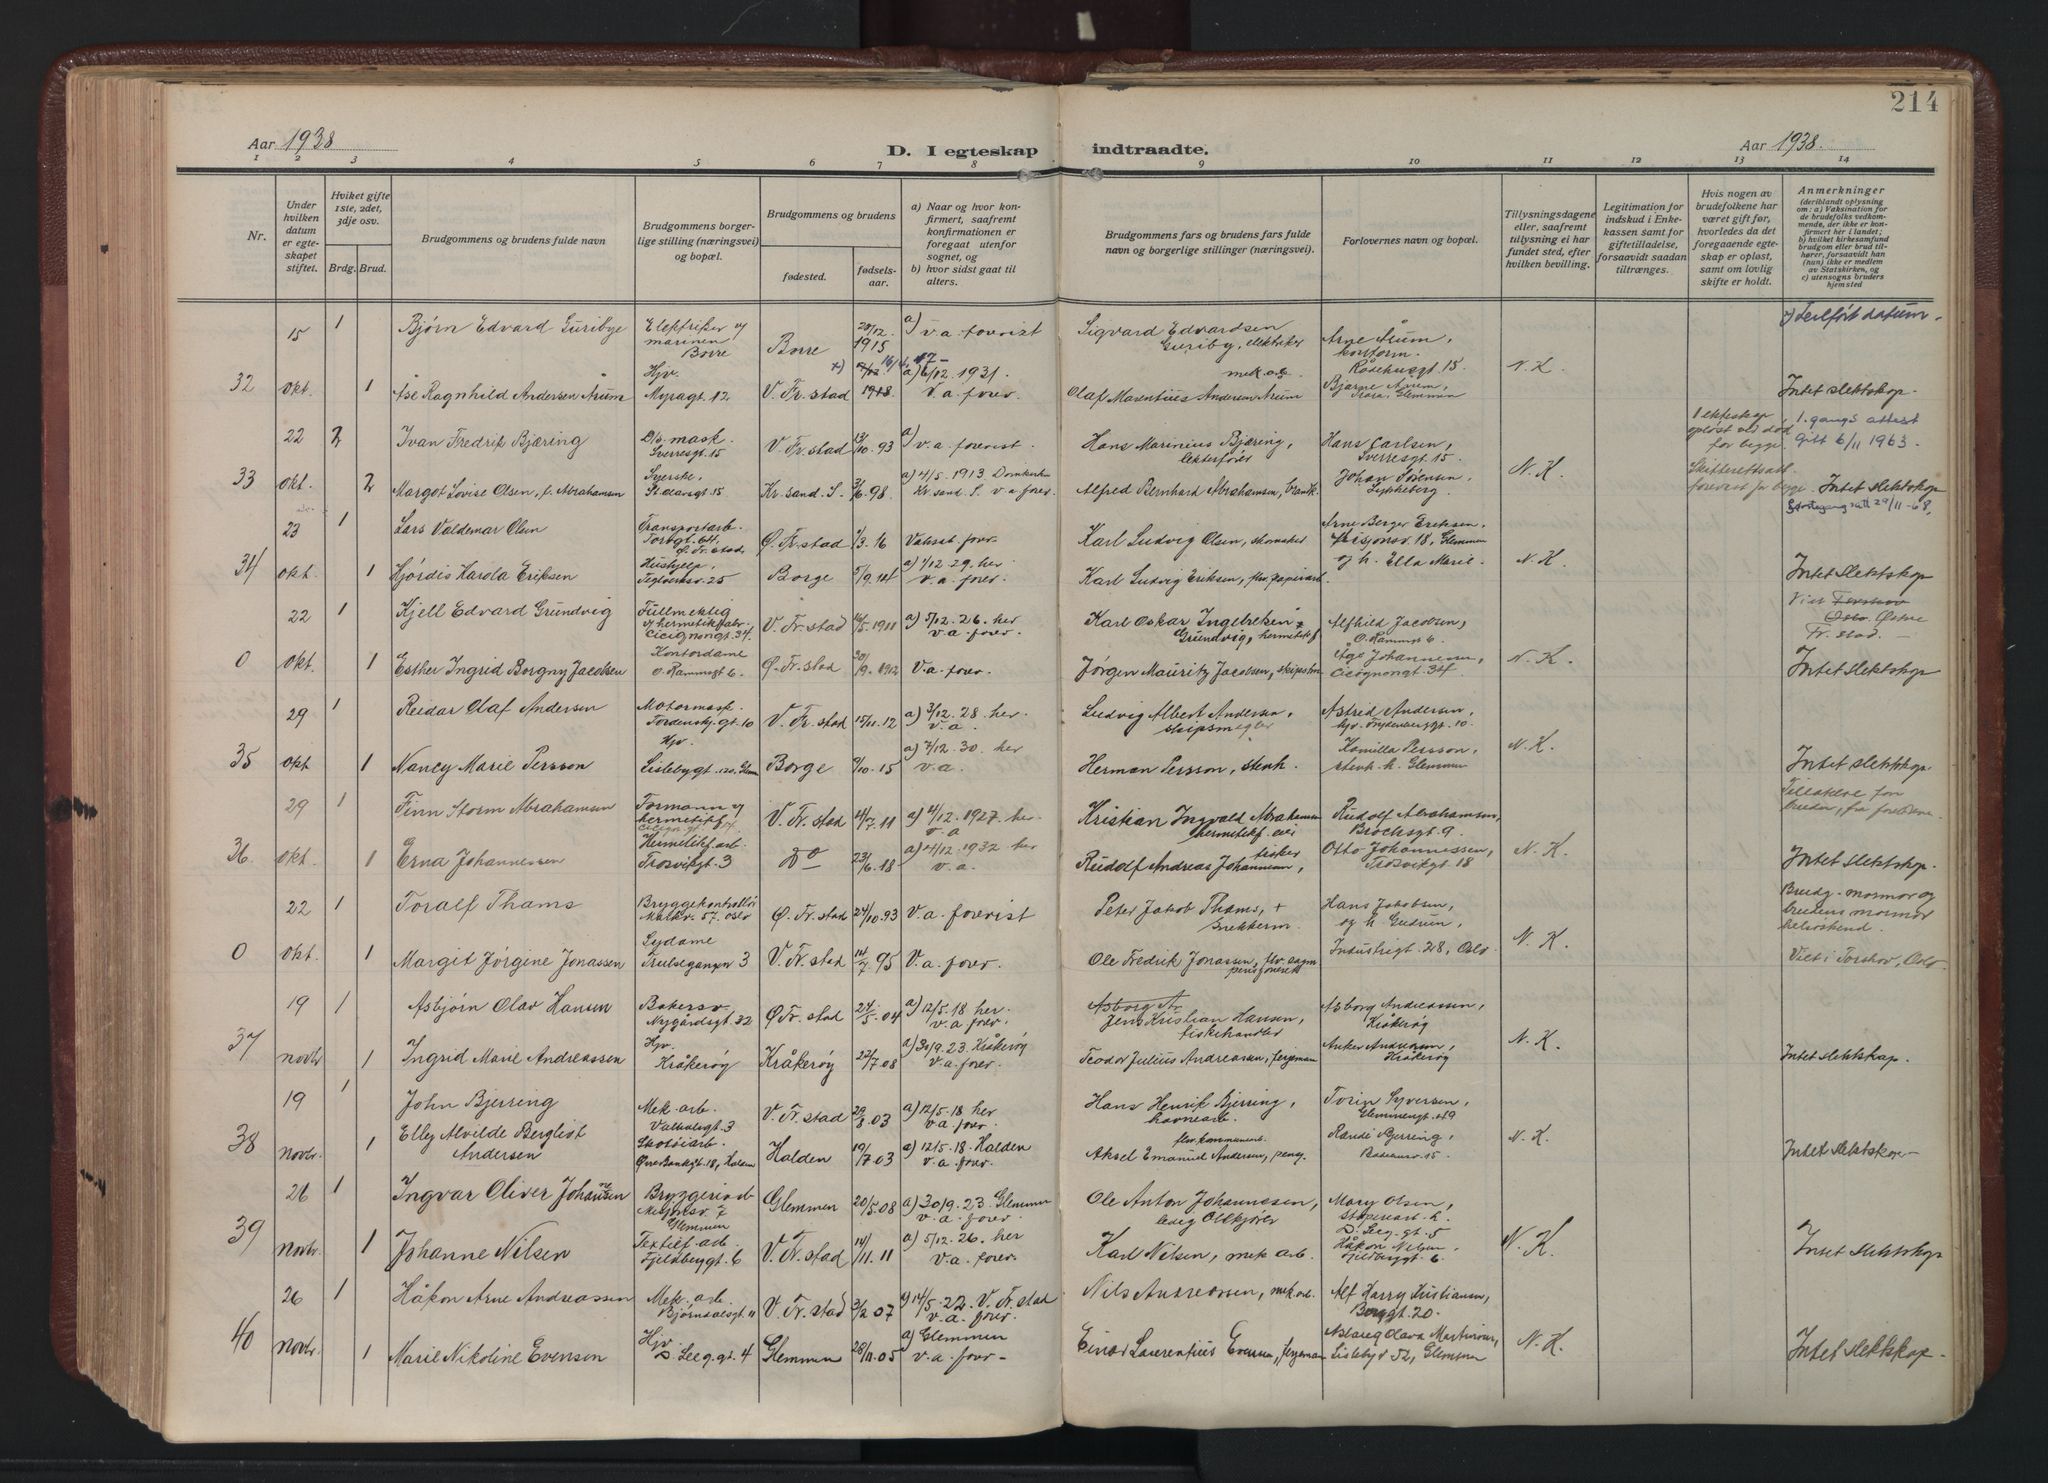 214
Aar 1938
D. I egteskap indtraadte.
Aar 1938.
1 2 3 4 5 6 7 8 9 10 11 12 13 14
Nr.
Under hvilken datum er egteskapet stiftet.
Hviket gifte 1ste, 2det, 3dje osv.
Brdg. Brud.
Brudgommens og brudens fulde navn
Brudgommens borgerlige stilling (næringsvei) og bopæl.
Brudgommens og brudens
fødested.
fødselsaar.
a) Naar og hvor konfirmert, saafremt konfirmationen er foregaat utenfor sognet, og
b) hvor sidst gaat til alters.
Brudgommens fars og brudens fars fulde navn og borgerlige stillinger (næringsvei).
Forlovernes navn og bopæl.
Tillysningsdagene eller, saafremt tillysning ei har fundet sted, efter hvilken bevilling.
Legitimation for indskud i Enkekassen samt for giftetilladelse, forsaavidt saadan tiltrænges.
Hvis nogen av brudefolkene har været gift før, hvorledes da det foregaaende egteskap er opløst, samt om lovlig skifte er holdt.
Anmerkninger (deriblandt oplysning om: a) Vaksination for de brudefolks vedkommende, der ikke er konfirmert her i landet; b) hvilket kirkesamfund brudgom eller brud tilhører, forsaavidt han (hun) ikke er medlem av Statskirken, og c) utensogns bruders hjemsted
15 1 Bjørn Edvard Guribye Elektriker v/ marinen Borre Borre 20/12 1915 a) v.a. forrist Sigvard Edvardsen Guriby, elektriker Arne Årum, kontorm. Råsehusgt 15 x) Feilført datum.
32 okt. 1 Åse Ragnhild Andersen Årum Hjv. Myragt. 12 V. Fr.stad 1918. a) 6/12. 1931. v.a. forev. Olaf Marentius Andersen Årum Bjarne Årum, Glemmen N.K. Intet slektskap.
22 2 Ivan Fredrik Bjæring D/s. mask. Sverresgt. 15 V. Fr.stad 13/10. 93 a) v.a. forrist. Hans Marinius Bjæring, lekterfører Hans Carlsen, Sverresgt. 15. 1 ekteskap opløst ved død for begge. 1. gangs attest Gitt 6/11 1963.
33 okt. 2 Margot Lovise Olsen, f. Abrahamsen Syerske, St.olavsgt. 15 Kr.sand. S. 3/6. 98. a) 4/5. 1913 Domkirken Kr sand. S. v.a. forev. Alfred Bernhard Abrahamsen, Johan Sørensen, Lykkeberg N.K. Skifteattest forevist for begge. Intet slektskap 29/11-68.
23 1 Lars Valdemar Olsen Transportarb. Torvgt. 64, Ø. Fr.stad Ø. Fr.stad 1/3. 16 Vaksat. forev. Karl Ludvig Olsen, skomaker Arne Berger Eriksen, 18, Glemmen
34 okt. 1 Hjørdis Karola Eriksen Hushjelp, Teglverksv. 25 Borge 5/9. 14 a) 1/12. 29. her v.a. forev. Karl Ludvig Eriksen, flv. papirarb. og h. Ella Marie N.K. Intet slektskap
22 1 Kjell Edvard Grundvig Fullmektig v/ hermetikkfabr. Cicignongt. 34. V. Fr.stad 1911 a) 5/12. 26. her v.a. forev. Karl Oskar Ingebretsen Grundvig, hermetikkf. Alfhild Jacobsen, O. Rammsgt 6. Viet Torshov Oslo Østre Fr.stad.
0 okt. 1 Esther Ingrid Borgny Jacobsen Kontordame O. Rammsgt 6. Ø. Fr.stad 20/9. 1912 V.a. forev. Jørgen Mauritz Jacobsen, Åge Johannesen, Cicignongt. 34 N.K. Intet slektskap
29 1 Reidar Olaf Andersen Motormask. Tordenskj.gt. 10 V. Fr.stad 15/11. 12 a) 3/12. 28. her. v.a. Ludvig Albert Andersen, skipsmegler Astrid Andersen, hjv. 10.
35 okt 1 Nancy Marie Persson Hjv. Lislebygt. 120, Glem. Borge 9/10. 15 a) 7/12. 30. her v.a. Herman Persson, stenh. Kamilla Persson, stenh. h. Glemmen N.K. Intet slektskap.
29 1 Finn Storm Abrahamsen Formann v/ hermetikkf. V. Fr.stad 14/7. 11 a) 4/12. 1927. her. v.a Kristian Ingvald Abrahamsen hermetikkf. eier Rudolf Abrahamsen, Brochsgt. 9. Tillatelse for bruden, fra foreldrene.
36. okt. 1 Erna Johannessen Hermetikkf.arb. Trosvikgt. 3 do 23/6. 18 a) 4/12. 1932 her v.a. Rudolf Andreas Johannesen, fisker Otto Johannessen, Trosvikgt. 18 N.K. Intet slektskap.
22 1 Toralf Thams Bryggekontrollør 57. Oslo Ø. Fr.stad 24/10. 93 V.a. forevist Peter Jakob Thams, + Hans Jakobsen, og h. Gudrun, Brudg. mormor og brudens mormor helsøskend.
0 okt. 1 Margit Jørgine Jonassen Sydame 3 V. Fr.stad 95 V.a. forev. Ole Fredrik Jonassen, Industrigt. 28, Oslo. N.K. Viet i Torshov, Oslo.
19 1 Asbjørn Olav Hansen Bakersv. Nygårdsgt. 32 Ø Fr.stad 24/5. 04 a) 12/5. 18. her. v.a. forev. Asborg An Jens Kristian Hansen, fiskehandler Asborg Andreassen, Kråkerøy
37 novbr. 1 Ingrid Marie Andreassen Hjv. Kråkerøy Kråkerøy 22/7 08 a) 30/9. 23. Kråkerøy v.a. forev. Teodor Julius Andreasen, fergeman Anker Andreasen, Kråkerøy N.K. Intet slektskap.
19 1 John Bjerring Mek. arb. 3 V. Fr.stad 29/8. 03 a) 12/5. 18 her v.a. forev. Hans Henrik Bjerring, havnearb. Torin Syversen, Glemmengt. 49
38 novbr. 1 Elly Alvilde Bergliot Andersen Skotøiarb. 18, Halden Halden 19/7 03 a) 12/5. 18. Halden v.a. forev. Aksel Emanuel Andersen, flv. kommunearb. Randi Bjerring, 15. N.K. Intet slektskap
26 1 Ingvar Oliver Johansen Bryggeriarb. Glemmen Glemmen 20/5. 08 a) 30/9. 23. Glemmen v.a. forev. Ole Anton Johannessen, Mary Olsen, h. S. Leeg.gt. 5
39 novbr. 1 Johanne Nilsen Textilf. arb. Fjeldbergt. 6 V. Fr.stad 14/11. 11 a) 5/12. 26. her v.a. forev. Karl Nilsen, mek arb. Håkon Nilsen, Fjeldbergt. 6 N.K. Intet slektskap
26 1 Håkon Arne Andreassen Mek. arb. Bjørndalsgt 11 V. Fr.stad 3/2 07 a) 14/5. 22. V. Fr.stad v.a. forev. Nils Andreassen, mek arb. Alf Harry Kristiansen, Borggt. 20.
40 novbr. 1 Marie Nikoline Evensen Hjv. S. Leeg.gt. 4 Glemmen 28/11. 05 a) Glemmen v.a. forev. Einar Laurentius Evensen, fergeman Aslaug Olava Martinsen, Lislebyv 52, Glemmen N.K. Intet slektskap.